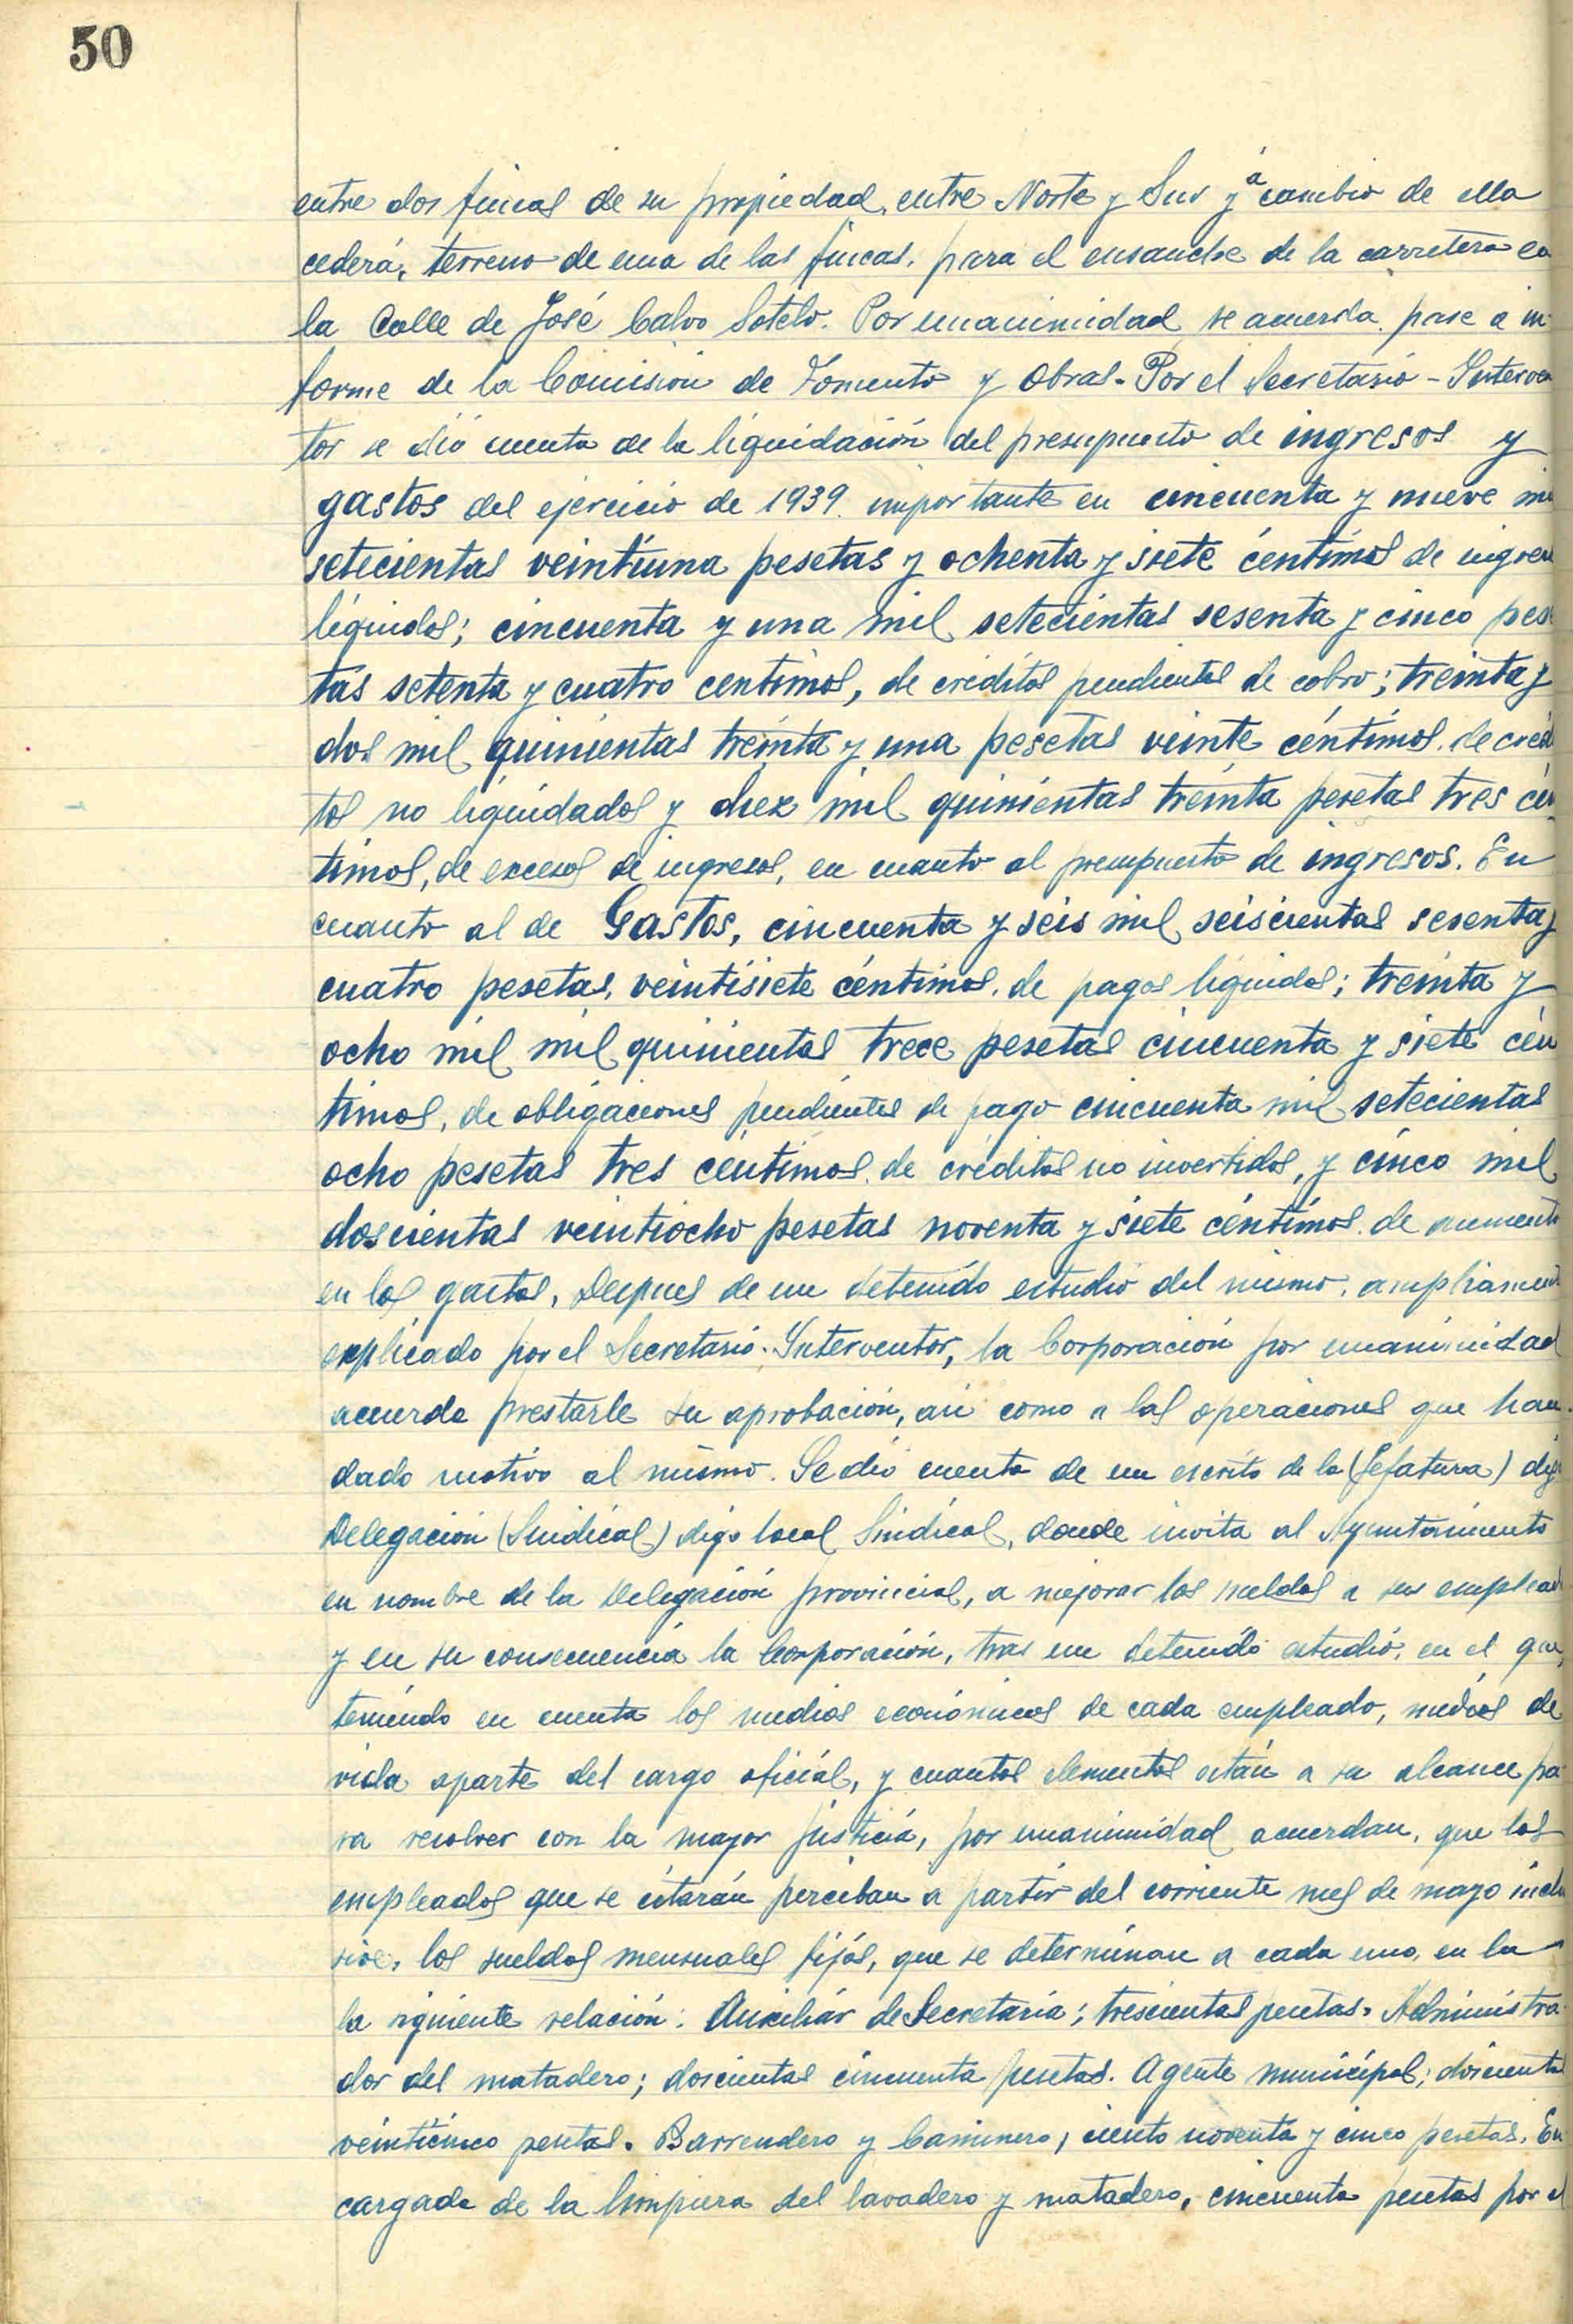 50
entre dos fincas de su propiedad, entre Norte y Sur y á cambio de ella
cederá, terreno de una de las fincas, para el ensanche de la carretera en
la Calle de José Calvo Sotelo. Por unanimidad se acuerda pase a in-
forme de la Comisión de Fomento y Obras. Por el Secretario-Interven
tor se dió cuenta de la liquidación del presupuesto de ingresos y
gastos del ejercicio de 1939 importante en cincuenta y nueve mil
setecientas veintiuna pesetas y ochenta y siete céntimos de ingresos
líquidos; cincuenta y una mil setecientas sesenta y cinco pese
tas setenta y cuatro centimos, de créditos pendientes de cobro; treinta y
dos mil quinientas treinta y una pesetas veinte céntimos, de crédi
tos no liquidados y diez mil quinientas treinta pesetas tres cén
timos, de excesos de ingresos, en cuanto al presupuesto de ingresos. En
cuanto al de Gastos, cincuenta y seis mil seiscientas sesenta y
cuatro pesetas, veintisiete céntimos, de pagos líquidos; treinta y
ocho mil mil quinientas trece pesetas cincuenta y siete cén
timos, de obligaciones pendientes de pago cincuenta mil setecientas
ocho pesetas tres céntimos, de créditos no invertidos, y cinco mil
doscientas veintiocho pesetas noventa y siete céntimos, de aumento
en los gastos, Despues de un detenido estudio del mismo, ampliament
explicado por el Secretario-Interventor, la Corporación por unanimidad
acuerda prestarle su aprobación, asi como a las operaciones que han
dado motivo al mismo. Se dió cuenta de un escrito de la (Jefatura) digo
Delegación (Sindical) digo local Sindical, donde invita al Ayuntamiento
en nombre de la Delegación provincial, a mejorar los sueldos a sus emplead
y en su consecuencia la Corporación, tras un detenido estudio, en el que,
teniendo en cuenta los medios económicos de cada empleado, medios de
vida aparte del cargo oficial, y cuantos elementos están a su alcance pa-
ra resolver con la mayor justicia, por unanimidad acuerdan, que los
empleados que se citarán perciban a partir del corriente mes de mayo inclu
sive, los sueldos mensuales fijos, que se determinan a cada uno, en la
la siguiente relación: Auxiliar de Secretaria; trescientas pesetas. Administra-
dor del matadero; doscientas cincuenta pesetas. Agente municipal; doscientas
veinticinco pesetas. Barrendero y Caminero, ciento noventa y cinco pesetas. En
cargada de la limpieza del lavadero y matadero, cincuenta pesetas por el